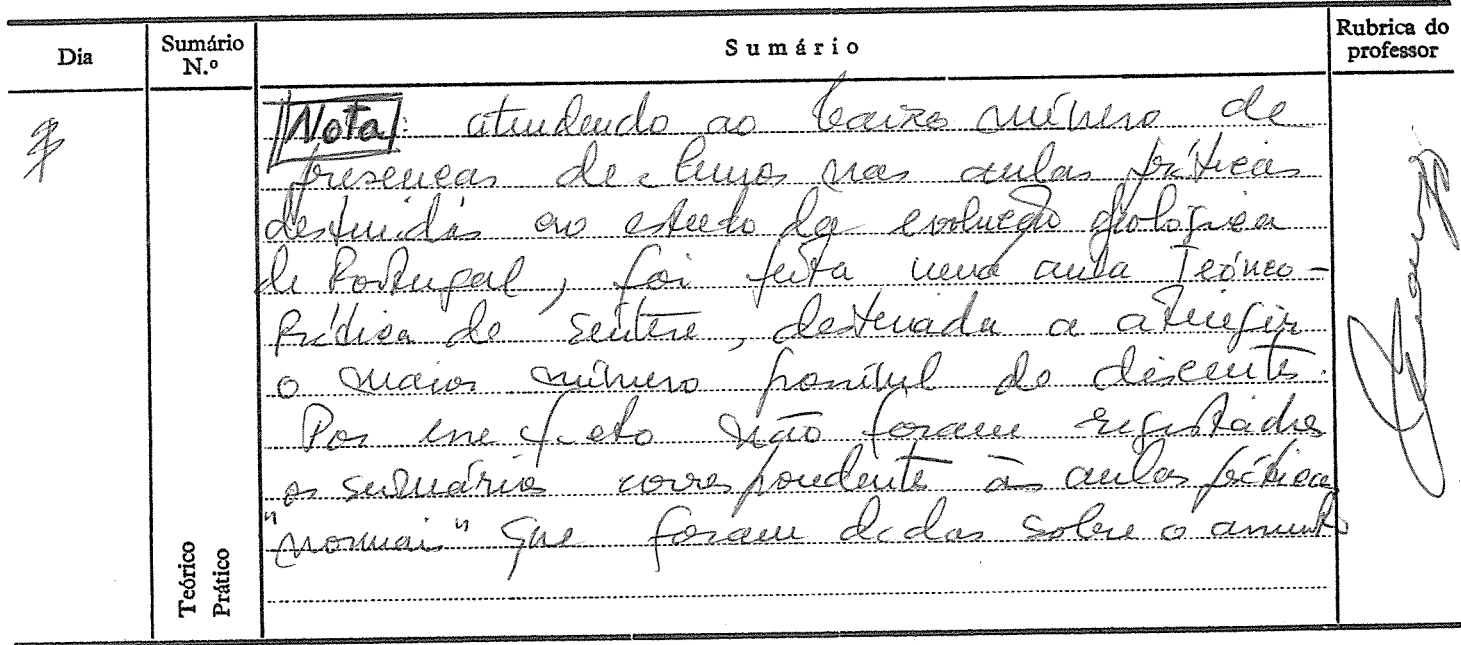 Dia
Sumário N.º
Sumário
Rubrica do professor
Nota: atendendo ao baixo número de
presenças de alunos nas aulas práticas
destinadas ao estudo da evolução geológica
de Portugal, foi feita uma aula Teórico-
Prática de , destinada a atingir
o maior número possível de discentes.
Por esse facto não foram registados
os sumários correspondente às aulas práticas
"normais" que foram dadas sobre o assunto
Teórico
Prático